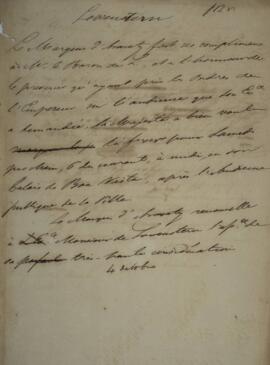 Lowenstern
Le Marquis d'Aracaty fait ses complimens
à Mr. le Baron de et a l'honneur de
le prevenir qu'ayant pris les Ordres de
l'Empereur sur l'audience que Son Ex.ce
a demandée, Sa Majesté a bien voulu
la fixer pour Samedi
prochain, 6 du courant, à midi en son
Palais de Boa Vista, après l'Audience
publique de la Ville.
Le Marquis d'Aracaty renouvelle
à Monsieur de Lowenstern l'ass.ce de
sa parfaite très-haute consideration
4 octobre